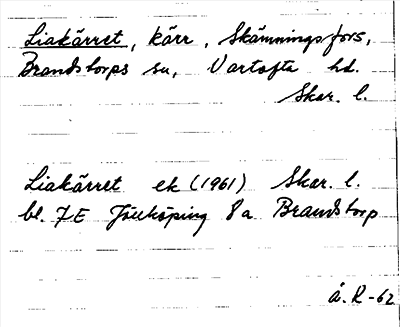 Liakärret, kärr, Skämningsfors,
Brandstorps sn, Vartofta hd.
Skar. l.
Liakärret ek (1961) Skar. l.
bl. 7E Jönköping 8a Brandstorp
å. R-62